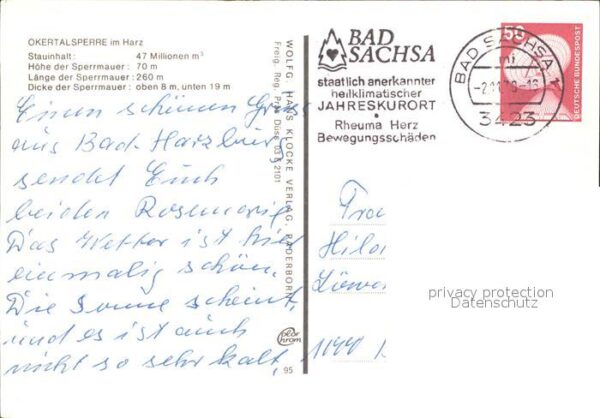 OKERTALSPERRE im Harz
Stauinhalt: 47 Millionen m³
Höhe der Sperrmauer: 70 m
Länge der Sperrmauer: 260 m
Dicke der Sperrmauer: oben 8 m, unten 19 m
Einen schönen Gruß
aus Bad Harzburg
sendet Euch
beiden Rosemarie
Das Wetter ist hier
einmalig schön.
Die Sonne scheint,
und es ist auch
nicht so sehr kalt,
WOLFG. HANS KLOCKE VERLAG, PADERBORN
Freig. Reg. Präs. Düss. 2101
polar chrom
95
BAD
SACHSA
staatlich anerkannter
heilklimatischer
JAHRESKURORT
Rheuma Herz
Bewegungsschäden
BAD SACHSA 1
mi
3423
50
DEUTSCHE BUNDESPOST
Hilde
privacy protection
Datenschutz